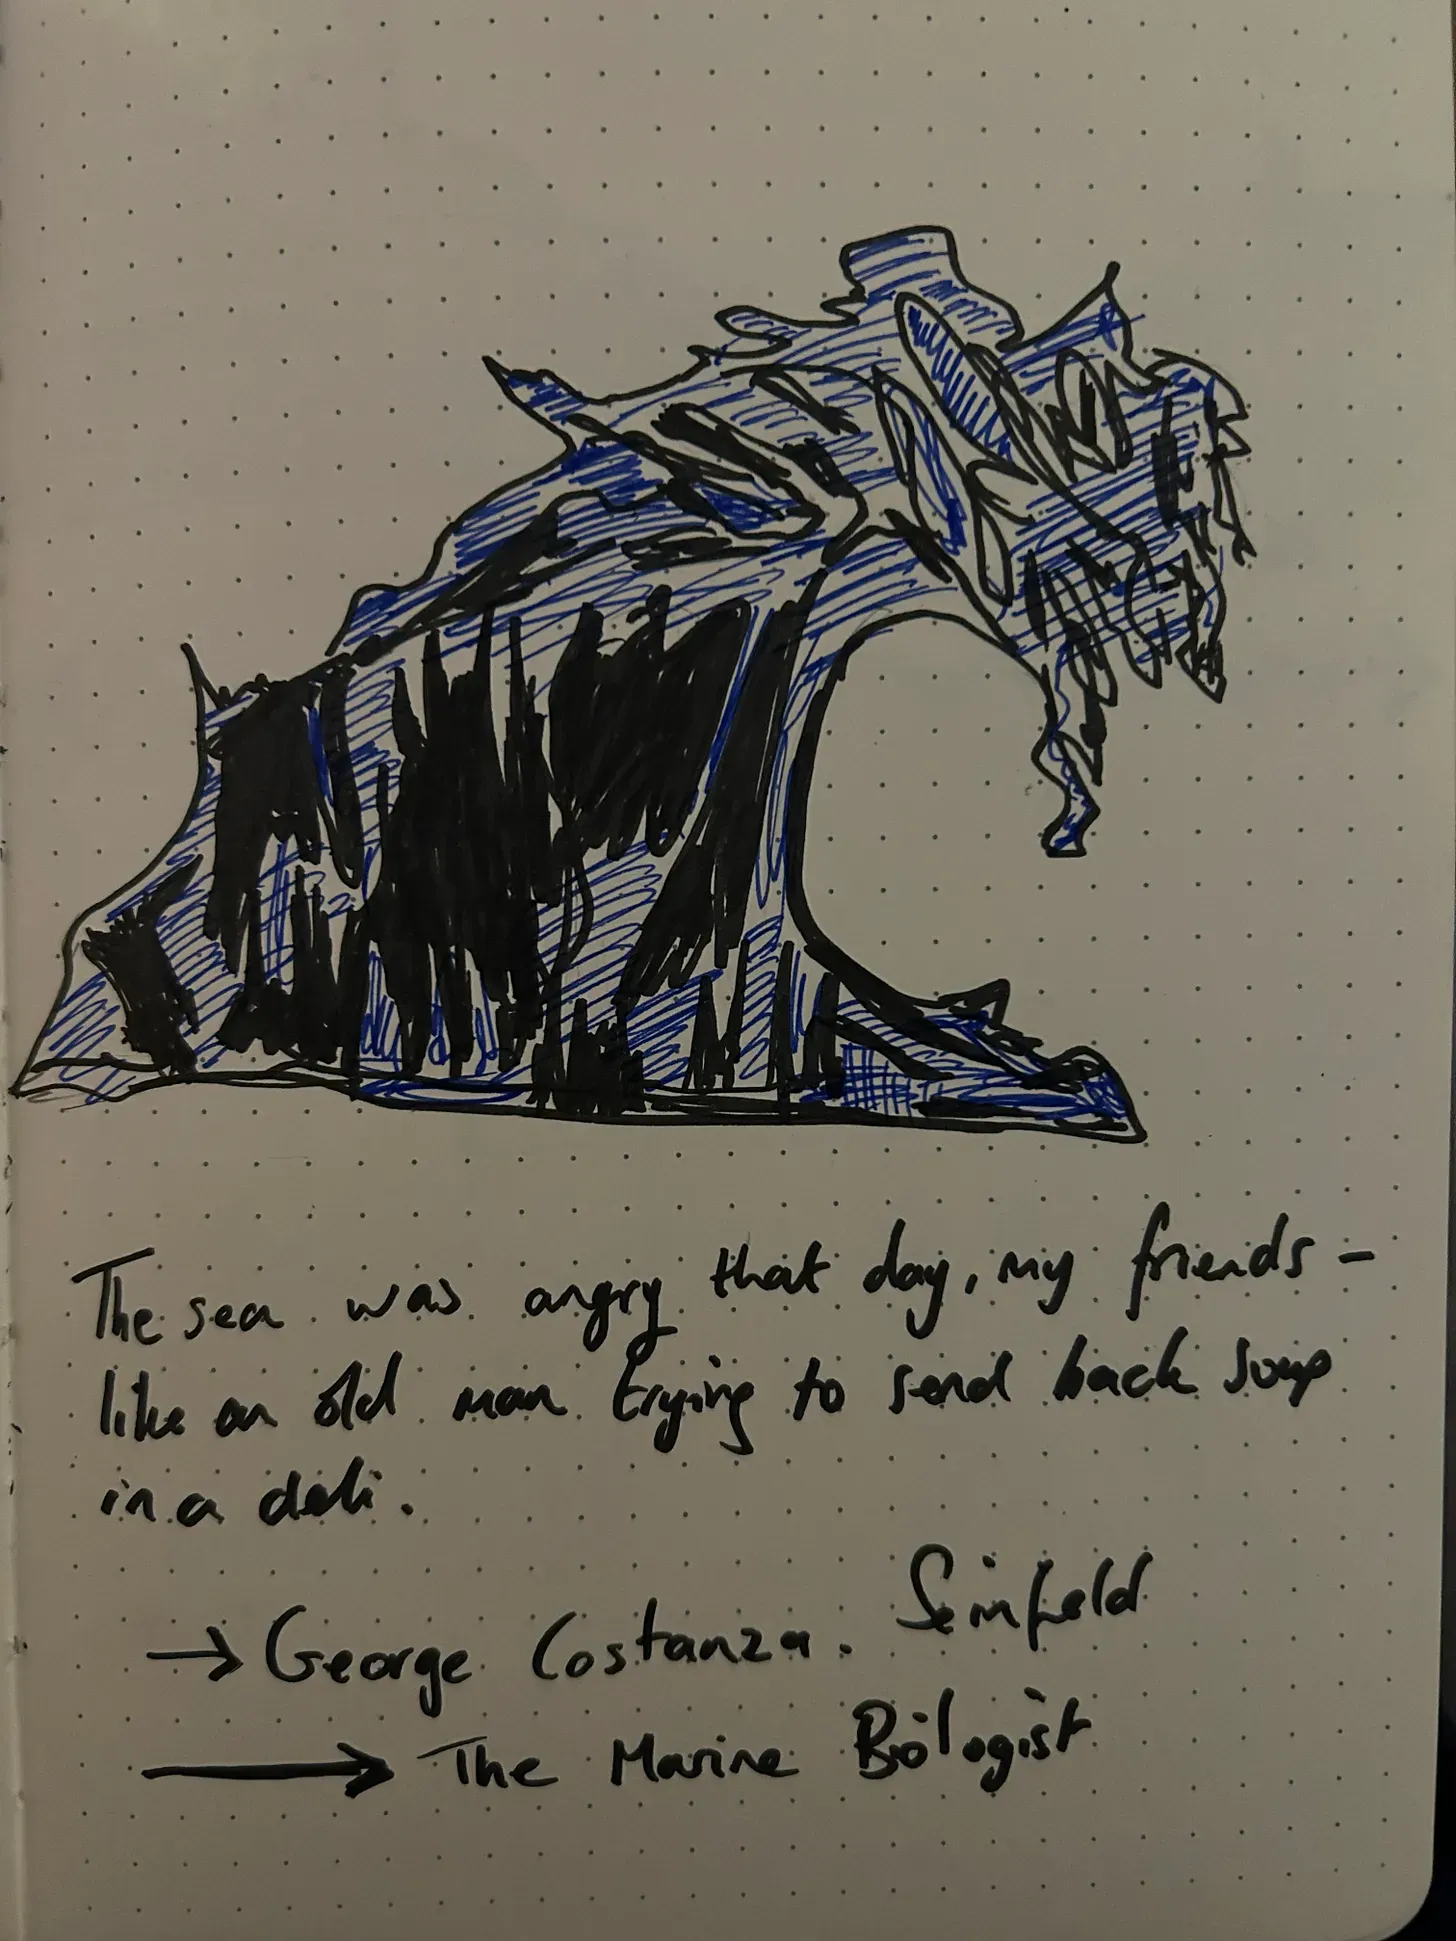 The sea was angry that day, my friends -
like an old man trying to send back soup
in a deli.
→ George Costanza. Seinfeld
→ The Marine Biologist